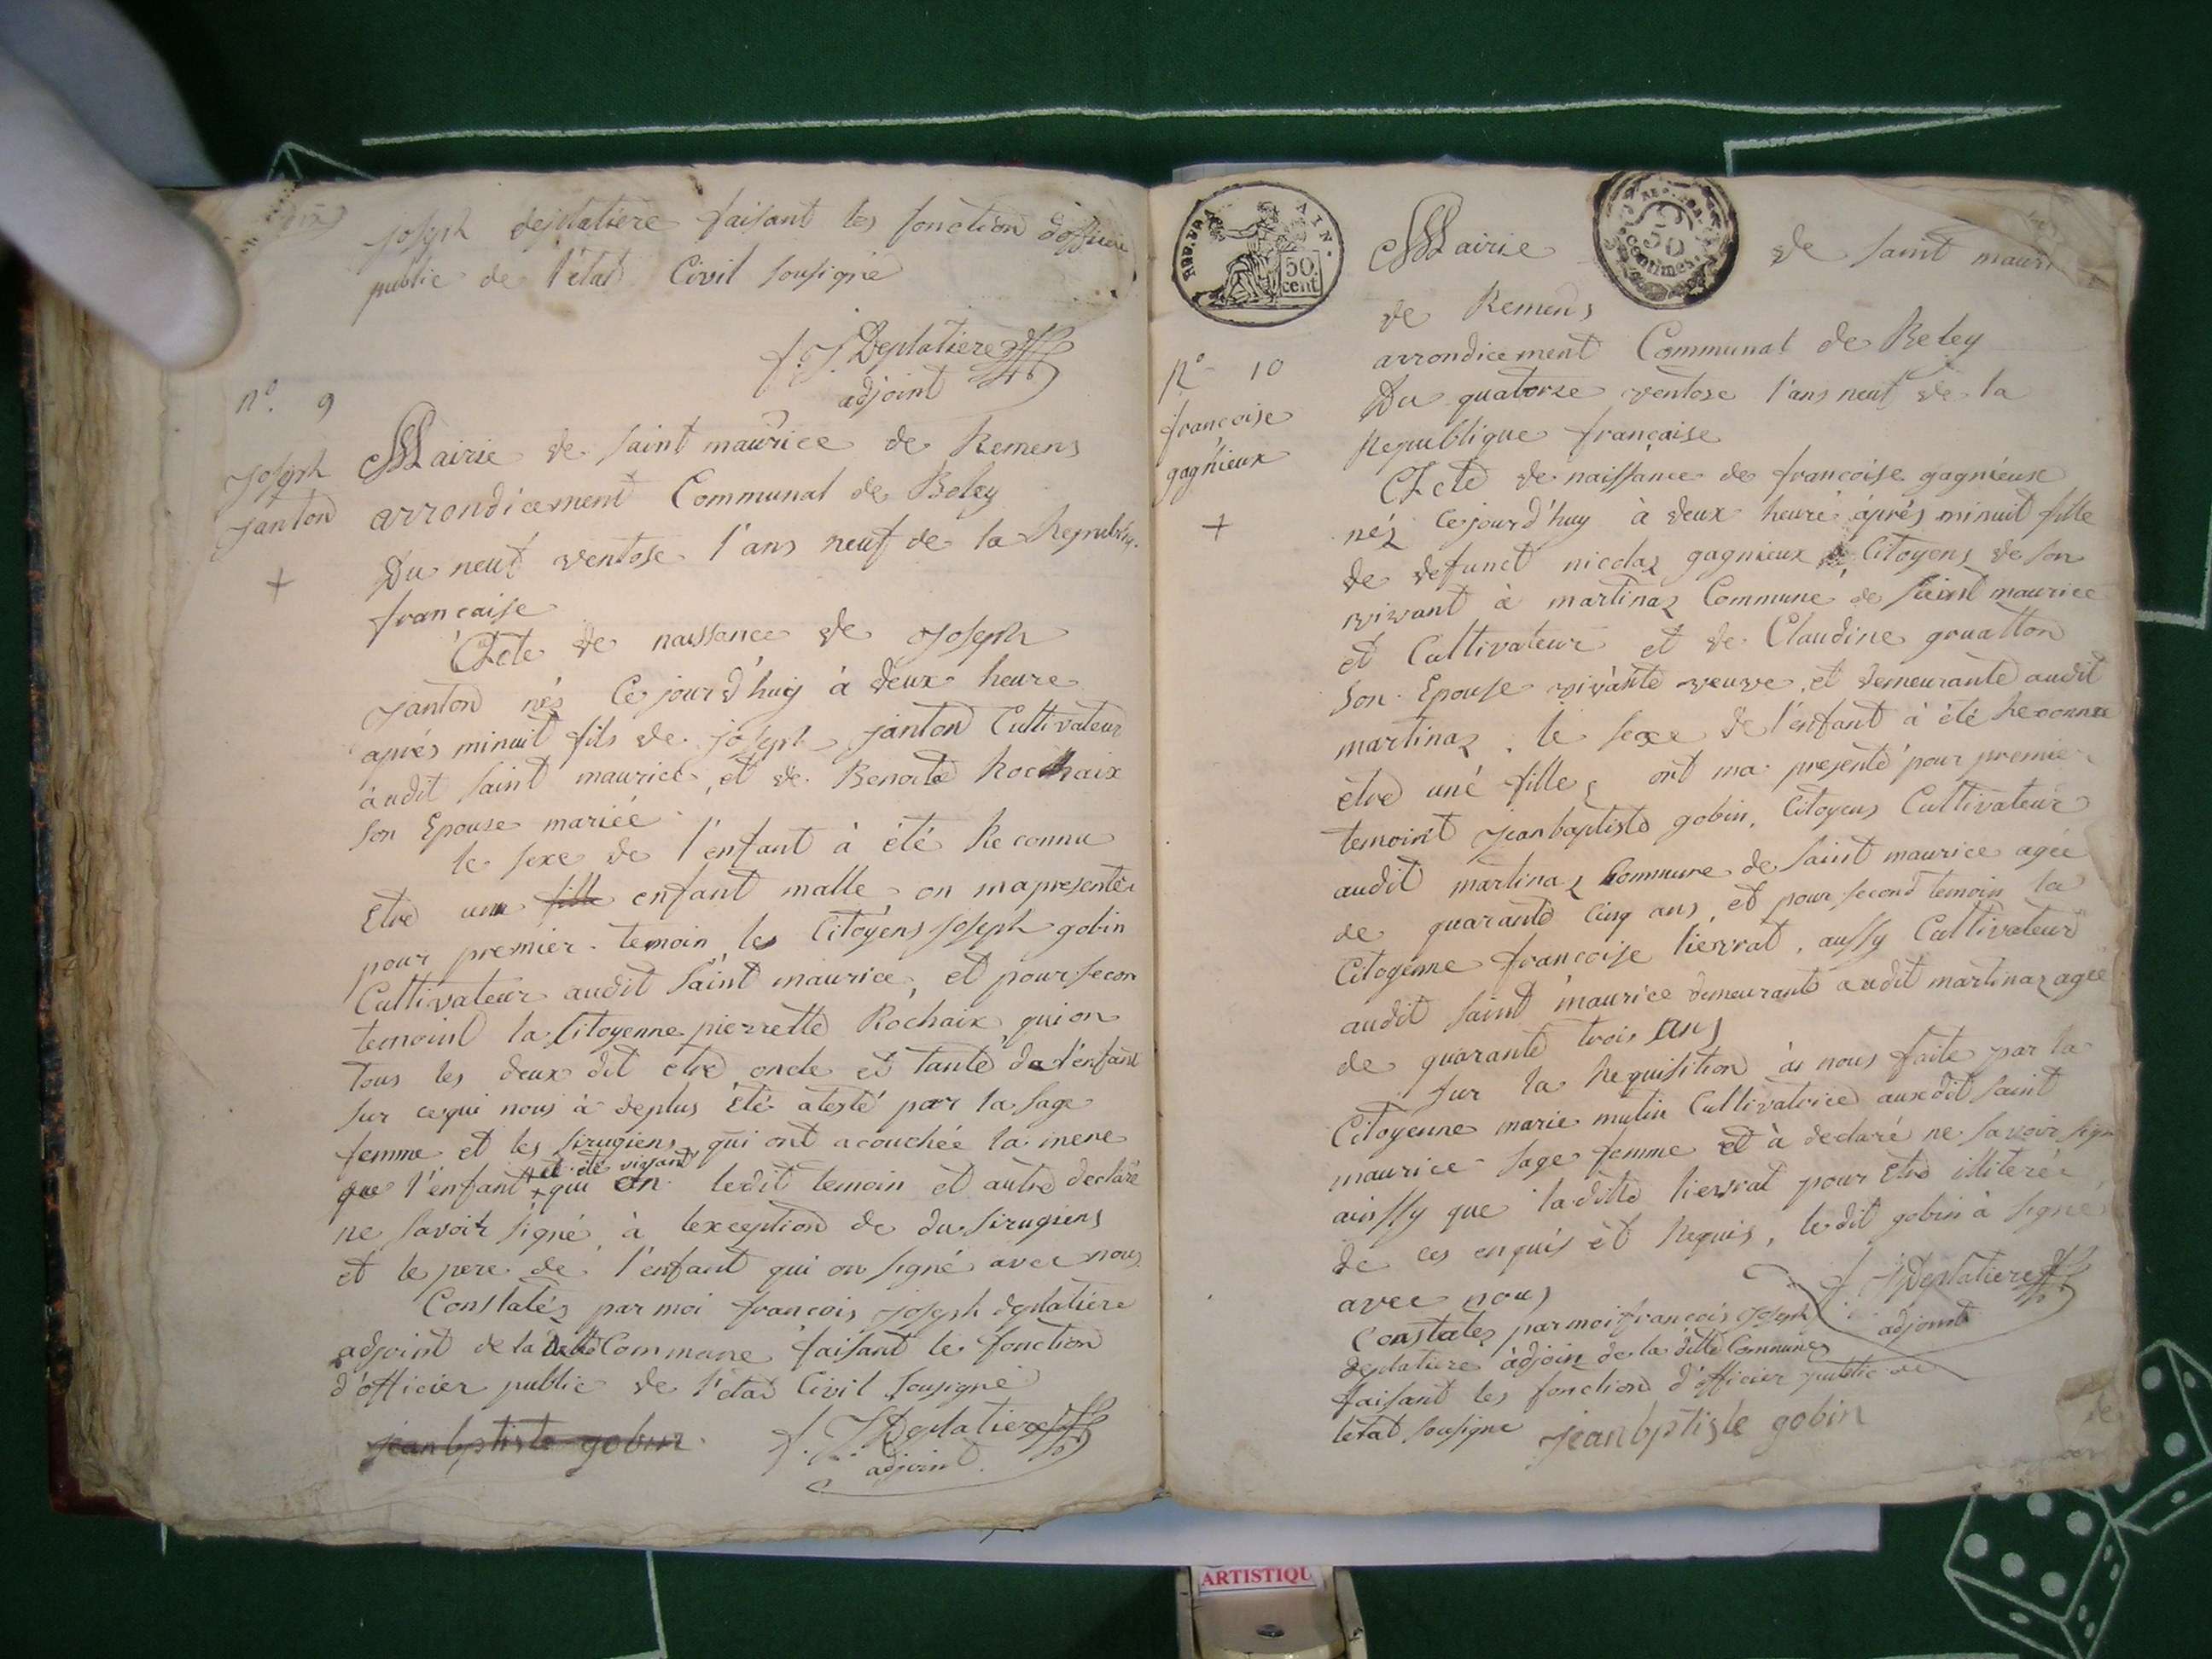 joseph deplatiere faisant les fonction d'officier
public de l'état Civil sousigné
f. J. Deplatiere
adjoint
n.º 9
Joseph
janton
+
Mairie de saint maurice de Remens
arrondicement Communal de Beley
Du neuf ventose l'ans neuf de la Republiq.
française
Acte de naissance de Joseph
janton nés Ce jourd'huy à deux heure
aprés minuit fils de joseph janton Cultivateur
audit saint maurice, et de Benoite Rochaix
son Epouse mariée
le sexe de l'enfant à été Reconnu
Etre un fille enfant malle, on mapresenter
pour premier temoin les Citoyens Joseph gobin
Cultivateur audit saint maurice, et pour secon
temoint la Citoyenne pierrette Rochaix, qui on
tous les deux dit etre oncle et tante de l'enfant
sur cequi nous à deplus été atesté par la sage
femme et les sirugiens qui ont acouchée la mere
+ et été vivant
que l'enfant + qui on ledit temoin et autre declare
ne savoir signé à lexception de du sirugiens
et le pere de l'enfant qui on signé avec nous
Constatés par moi francois joseph deplatiere
adjoint de la ditte Commune faisant le fonction
d'officier public de l'état Civil sousigné
jean bptiste gobin
f. J. Deplatiere
adjoint
REP. FRA. AIN.
50
cent.
50
centimes.
Mairie de saint mauri
de Remens
arrondicement Communal de Beley
Nº 10
francoise
gagnieux
+
Du quatorze ventose l'ans neuf de la
Republique française
Acte de naissance de francoise gagnieux
néz Cejourd'huy à deux heure aprés minuit fille
de defunct nicolaz gagnieux Citoyens de son
vivant à martinaz Commune de saint maurice
et Cultivateur et de Claudine gruatton
son Epouse vivante veuve, et demeurante audit
martinaz, le sexe de l'enfant à été Reconnue
etre une fille, ont ma presenté pour premier
temoint Jeanbaptiste gobin, Citoyens Cultivateur
audit martinaz Commune de saint maurice agée
de quarante Cinq ans, et pour second temoin la
Citoyenne francoise lievrat, aussy Cultivateur
audit saint maurice demeurante audit martinaz agée
de quarante trois ans
sur la Requisition à nous faite par la
Citoyenne marie mutin Cultivatrice auxdit saint
maurice sage femme et à declaré ne savoir sign
ainssy que laditte lievrat pour Etre illiterée
de ces enquis et Requis, le dit gobin à signé
avec nous
Constatez par moi francois Joseph
deplatiere adjoin de la ditte Commune
faisant les fonction d'officier public de
letat sousigne
f. J. Deplatiere
adjoint
jean bptiste gobin
ARTISTIQU